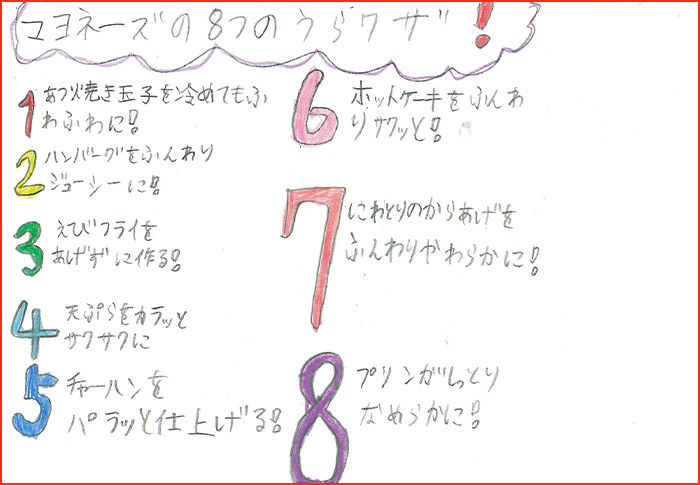 マヨネーズの8つのうらワザ!
1 あつ焼き玉子を冷めてもふ
わふわに!
2 ハンバーグをふんわり
ジューシーに!
3 えびフライを
あげずに作る!
4 天ぷらをカラッと
サクサクに
5 チャーハンを
パラッと仕上げる!
6 ホットケーキをふんわ
りサクッと!
7 にわとりのからあげを
ふんわりやわらかに!
8 プリンがしっとり
なめらかに!